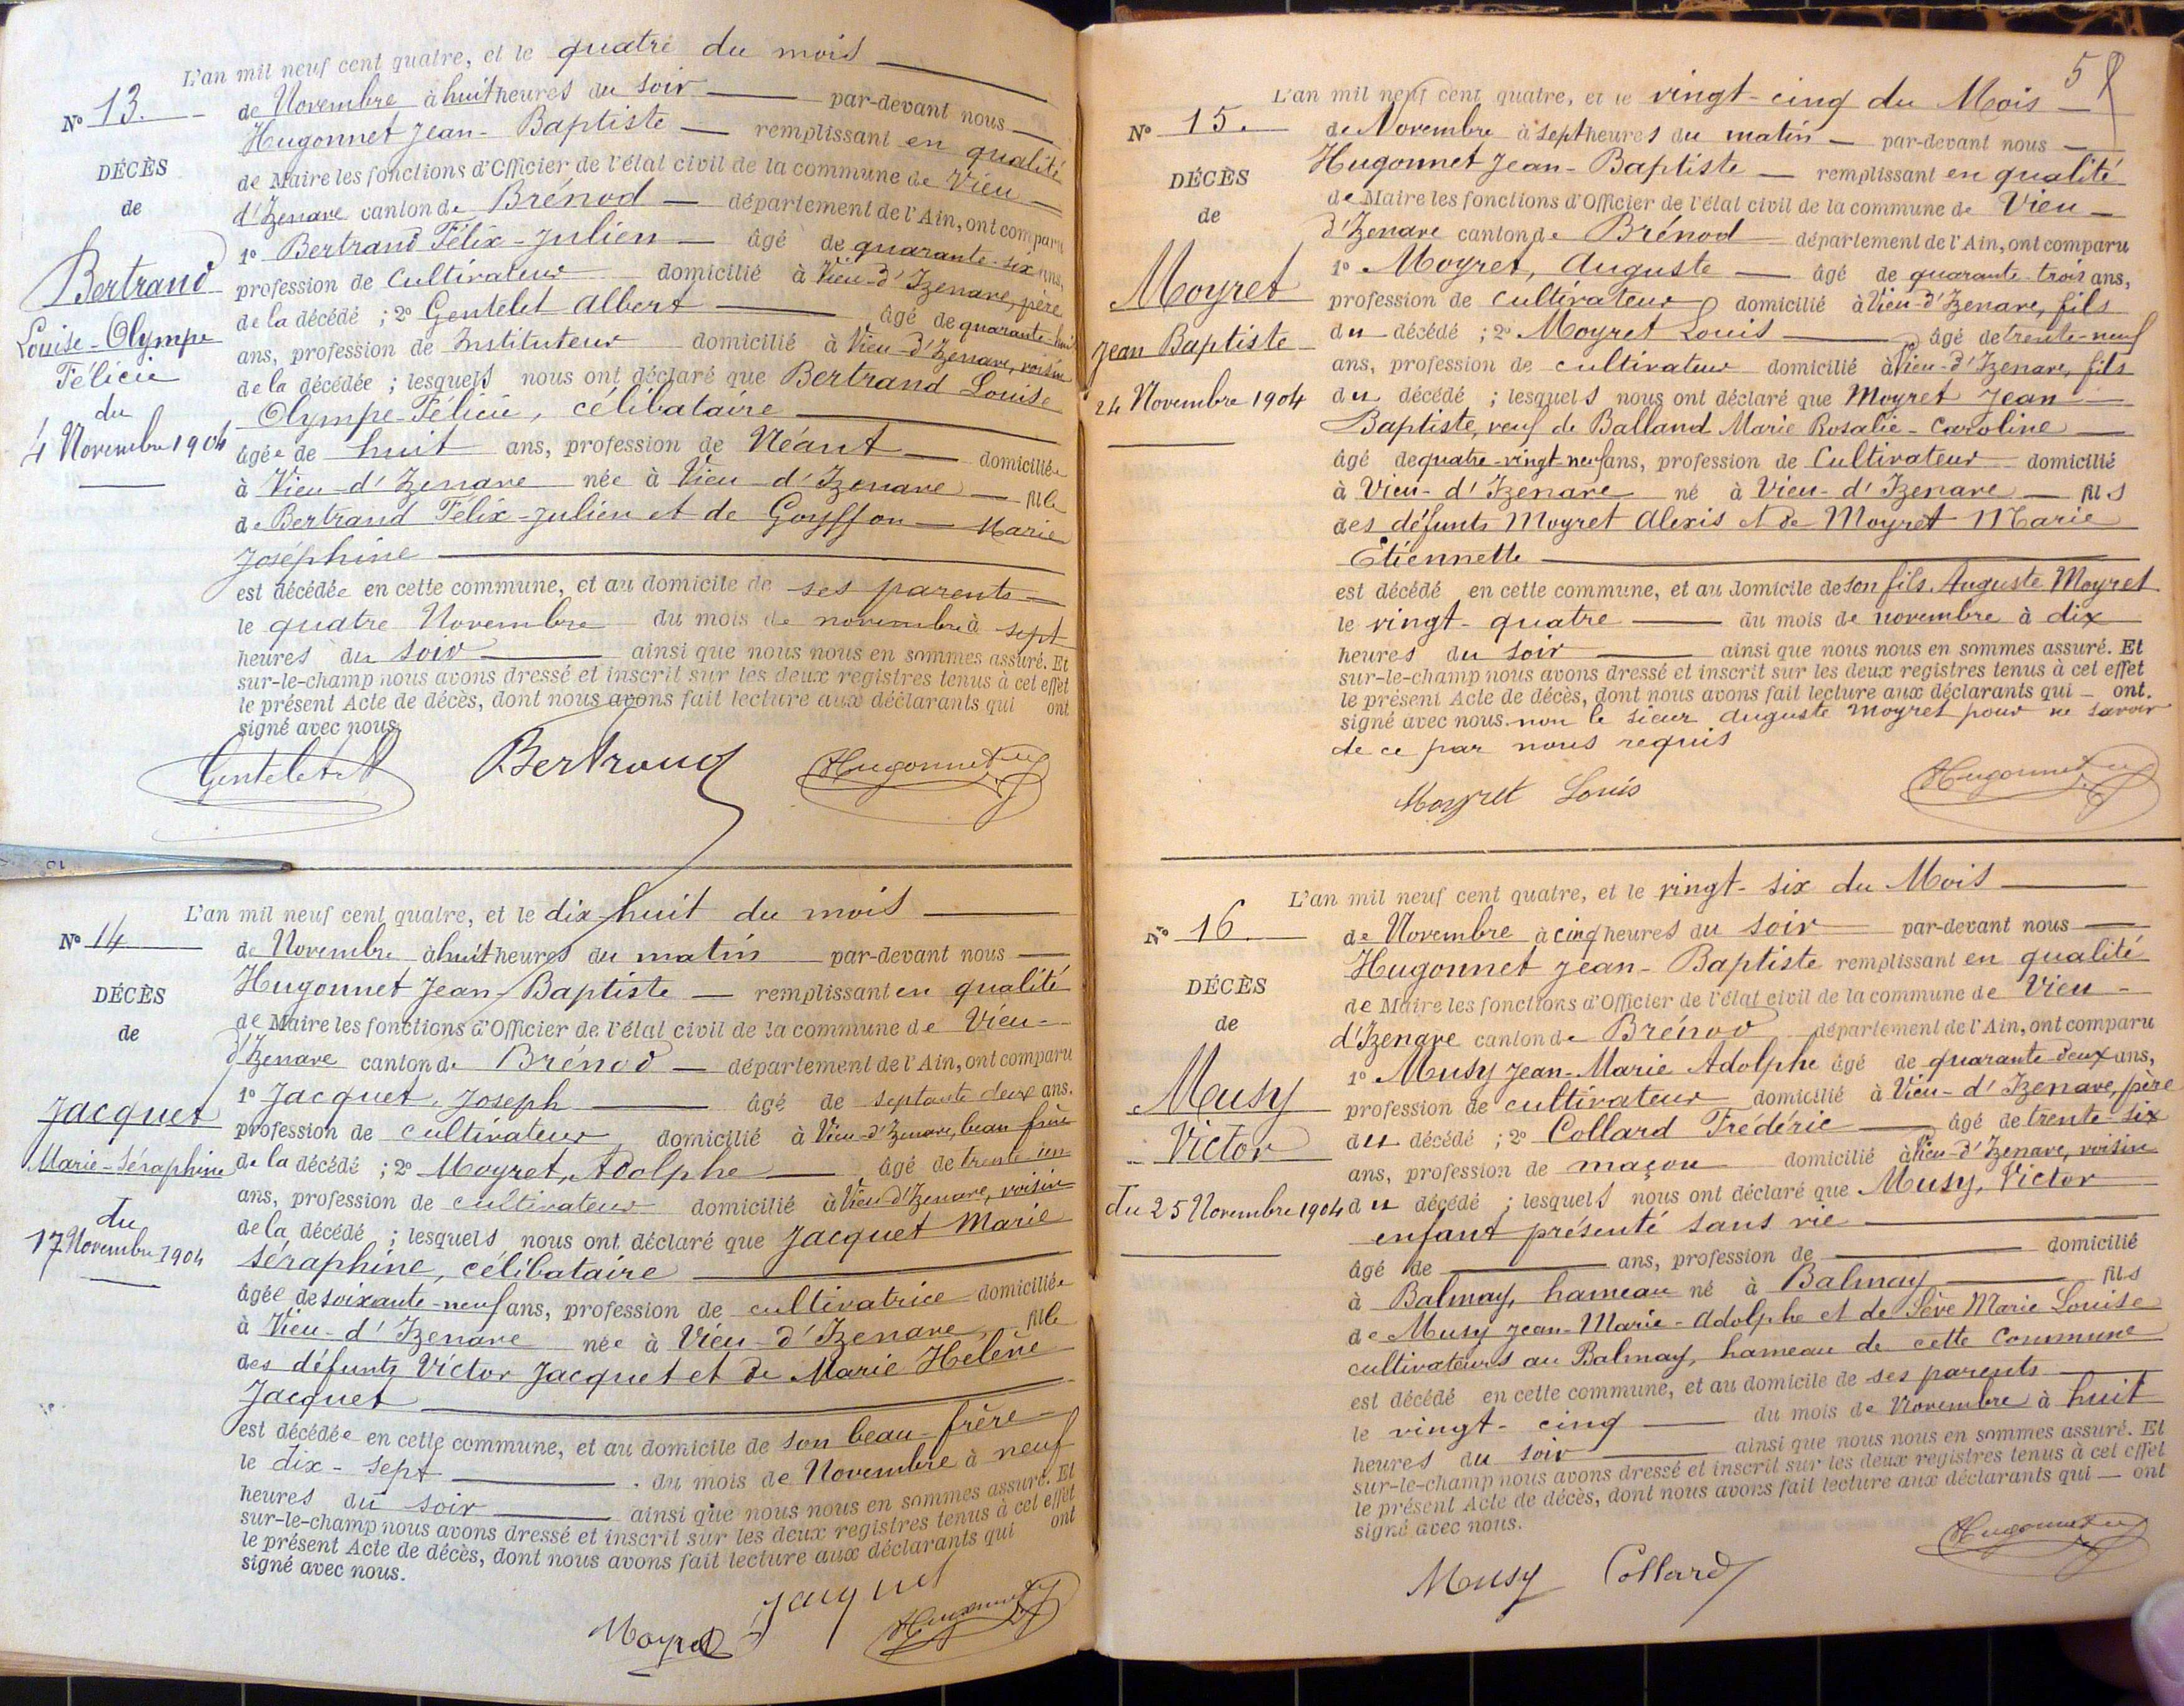 L'an mil neuf cent quatre, et le quatre du mois
N° 13.
de Novembre à huit heures du soir par-devant nous
Hugonnet Jean-Baptiste remplissant en qualité
DÉCÈS
de Maire les fonctions d'Officier de l'état civil de la commune de Vieu
de
d'Izenave canton de Brénod département de l'Ain, ont comparu
1° Bertrand Félix-Julien âgé de quarante-six ans,
Bertrand
profession de Cultivateur domicilié à Vieu-d'Izenave, père
Louise-Olympe
de la décédé ; 2° Gentelet Albert âgé de quarante-huit
Félicie
ans, profession de Instituteur domicilié à Vieu-d'Izenave, voisin
du
de la décédée ; lesquels nous ont déclaré que Bertrand Louise
4 Novembre 1904
Olympe-Félicie, célibataire
âgée de huit ans, profession de Néant domiciliée
à Vieu-d'Izenave née à Vieu-d'Izenave fille
de Bertrand Félix-Julien et de Goyffon Marie
Joséphine
est décédée en cette commune, et au domicile de ses parents
le quatre Novembre du mois de novembre à sept
heures du soir ainsi que nous nous en sommes assuré. Et
sur-le-champ nous avons dressé et inscrit sur les deux registres tenus à cet effet
le présent Acte de décès, dont nous avons fait lecture aux déclarants qui ont
signé avec nous.
Gentelet A Bertrand Hugonnet
L'an mil neuf cent quatre, et le dix-huit du mois
N° 14
de Novembre à huit heures du matin par-devant nous
Hugonnet Jean-Baptiste remplissant en qualité
DÉCÈS
de Maire les fonctions d'Officier de l'état civil de la commune de Vieu-
de
d'Izenave canton de Brénod département de l'Ain, ont comparu
1° Jacquet, Joseph âgé de septante deux ans.
Jacquet
profession de cultivateur, domicilié à Vieu-d'Izenave, beau frère
Marie-Séraphine
de la décédé ; 2° Moyret, Adolphe âgé de trente un
ans, profession de cultivateur domicilié à Vieu d'Izenave, voisin
du
de la décédé ; lesquels nous ont déclaré que Jacquet Marie
17 Novembre 1904
séraphine, célibataire
âgée de soixante-neuf ans, profession de cultivatrice domiciliée
à Vieu-d'Izenave née à Vieu-d'Izenave, fille
des défunts Victor Jacquet et de Marie Hélène
Jacquet
est décédée en cette commune, et au domicile de son beau-frère
le dix-sept du mois de Novembre à neuf
heures du soir ainsi que nous nous en sommes assuré. Et
sur-le-champ nous avons dressé et inscrit sur les deux registres tenus à cet effet
le présent Acte de décès, dont nous avons fait lecture aux déclarants qui ont
signé avec nous.
Moyret Jacquet Hugonnet
58
L'an mil neuf cent quatre, et le vingt-cinq du Mois
N° 15.
de Novembre à sept heures du matin par-devant nous
Hugonnet Jean-Baptiste remplissant en qualité
DÉCÈS
de Maire les fonctions d'Officier de l'état civil de la commune de Vieu
de
d'Izenave canton de Brénod département de l'Ain, ont comparu
1° Moyret, Auguste âgé de quarante-trois ans,
Moyret
profession de cultivateur domicilié à Vieu-d'Izenave, fils
Jean Baptiste
du décédé ; 2° Moyret Louis âgé de trente-neuf
ans, profession de cultivateur domicilié à Vieu-d'Izenave, fils
24 Novembre 1904
du décédé ; lesquels nous ont déclaré que Moyret Jean
Baptiste, veuf de Balland Marie Rosalie-Caroline
âgé de quatre-vingt-neuf ans, profession de Cultivateur domicilié
à Vieu-d'Izenave né à Vieu-d'Izenave fils
des défunts Moyret Alexis et de Moyret Marie
Etiennette
est décédé en cette commune, et au domicile de son fils, Auguste Moyret
le vingt-quatre du mois de novembre à dix
heures du soir ainsi que nous nous en sommes assuré. Et
sur-le-champ nous avons dressé et inscrit sur les deux registres tenus à cet effet
le présent Acte de décès, dont nous avons fait lecture aux déclarants qui ont.
signé avec nous. non le sieur Auguste Moyret pour ne savoir
de ce par nous requis
Moyret Louis Hugonnet
L'an mil neuf cent quatre, et le vingt-six du Mois
N° 16.
de Novembre à cinq heures du soir par-devant nous
Hugonnet Jean-Baptiste remplissant en qualité
DÉCÈS
de Maire les fonctions d'Officier de l'état civil de la commune de Vieu-
de
d'Izenave canton de Brénod département de l'Ain, ont comparu
1° Musy Jean-Marie Adolphe âgé de quarante-deux ans,
Musy
profession de cultivateur domicilié à Vieu-d'Izenave, père
Victor
du décédé ; 2° Collard Frédéric âgé de trente-six
ans, profession de maçon domicilié à Vieu-d'Izenave, voisin
du 25 Novembre 1904
du décédé ; lesquels nous ont déclaré que Musy, Victor
enfant présenté sans vie
âgé de ans, profession de domicilié
à Balmay, hameau né à Balmay fils
de Musy Jean-Marie-Adolphe et de Sève Marie Louise
cultivateurs au Balmay, hameau de cette Commune
est décédé en cette commune, et au domicile de ses parents
le vingt-cinq du mois de Novembre à huit
heures du soir ainsi que nous nous en sommes assuré. Et
sur-le-champ nous avons dressé et inscrit sur les deux registres tenus à cet effet
le présent Acte de décès, dont nous avons fait lecture aux déclarants qui ont
signé avec nous.
Musy Collard Hugonnet